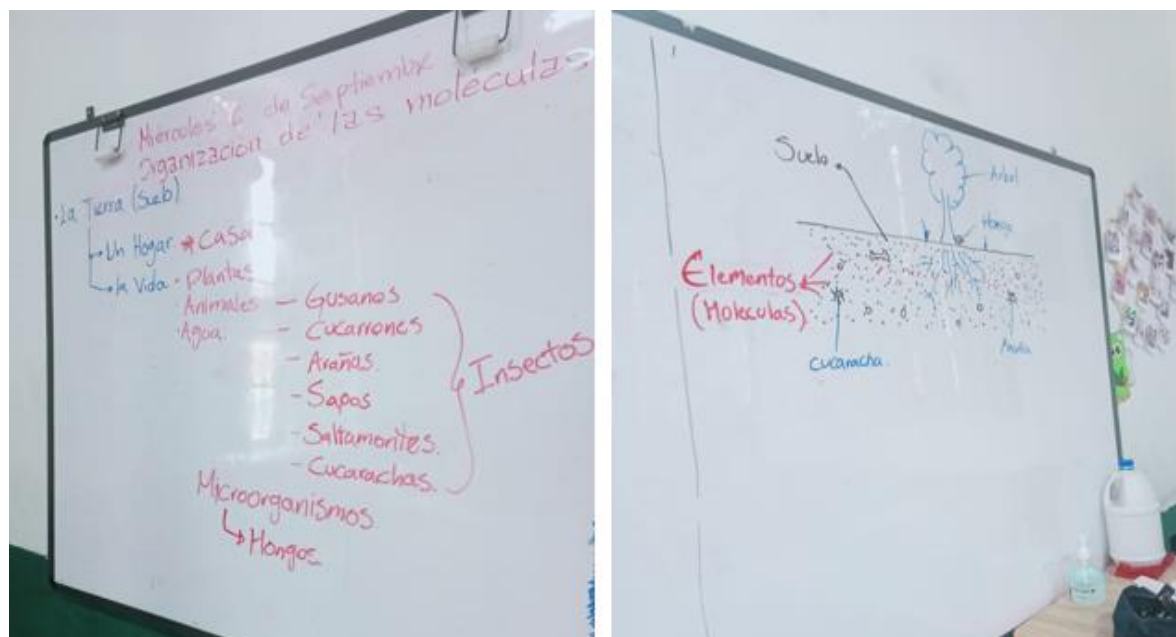 Miércoles 6 de Septiembre
Organización de las moléculas
· La Tierra (Suelo)
→ Un Hogar * casa
→ la Vida · Plantas
Animales — Gusanos
· Agua. - Cucarrones
- Arañas.
- Sapos
- Saltamontes.
- Cucarachas.
Insectos
Microorganismos
↳ Hongos
Suelo
Arbol
Hongo
Elementos
(Moleculas)
cucaracha.